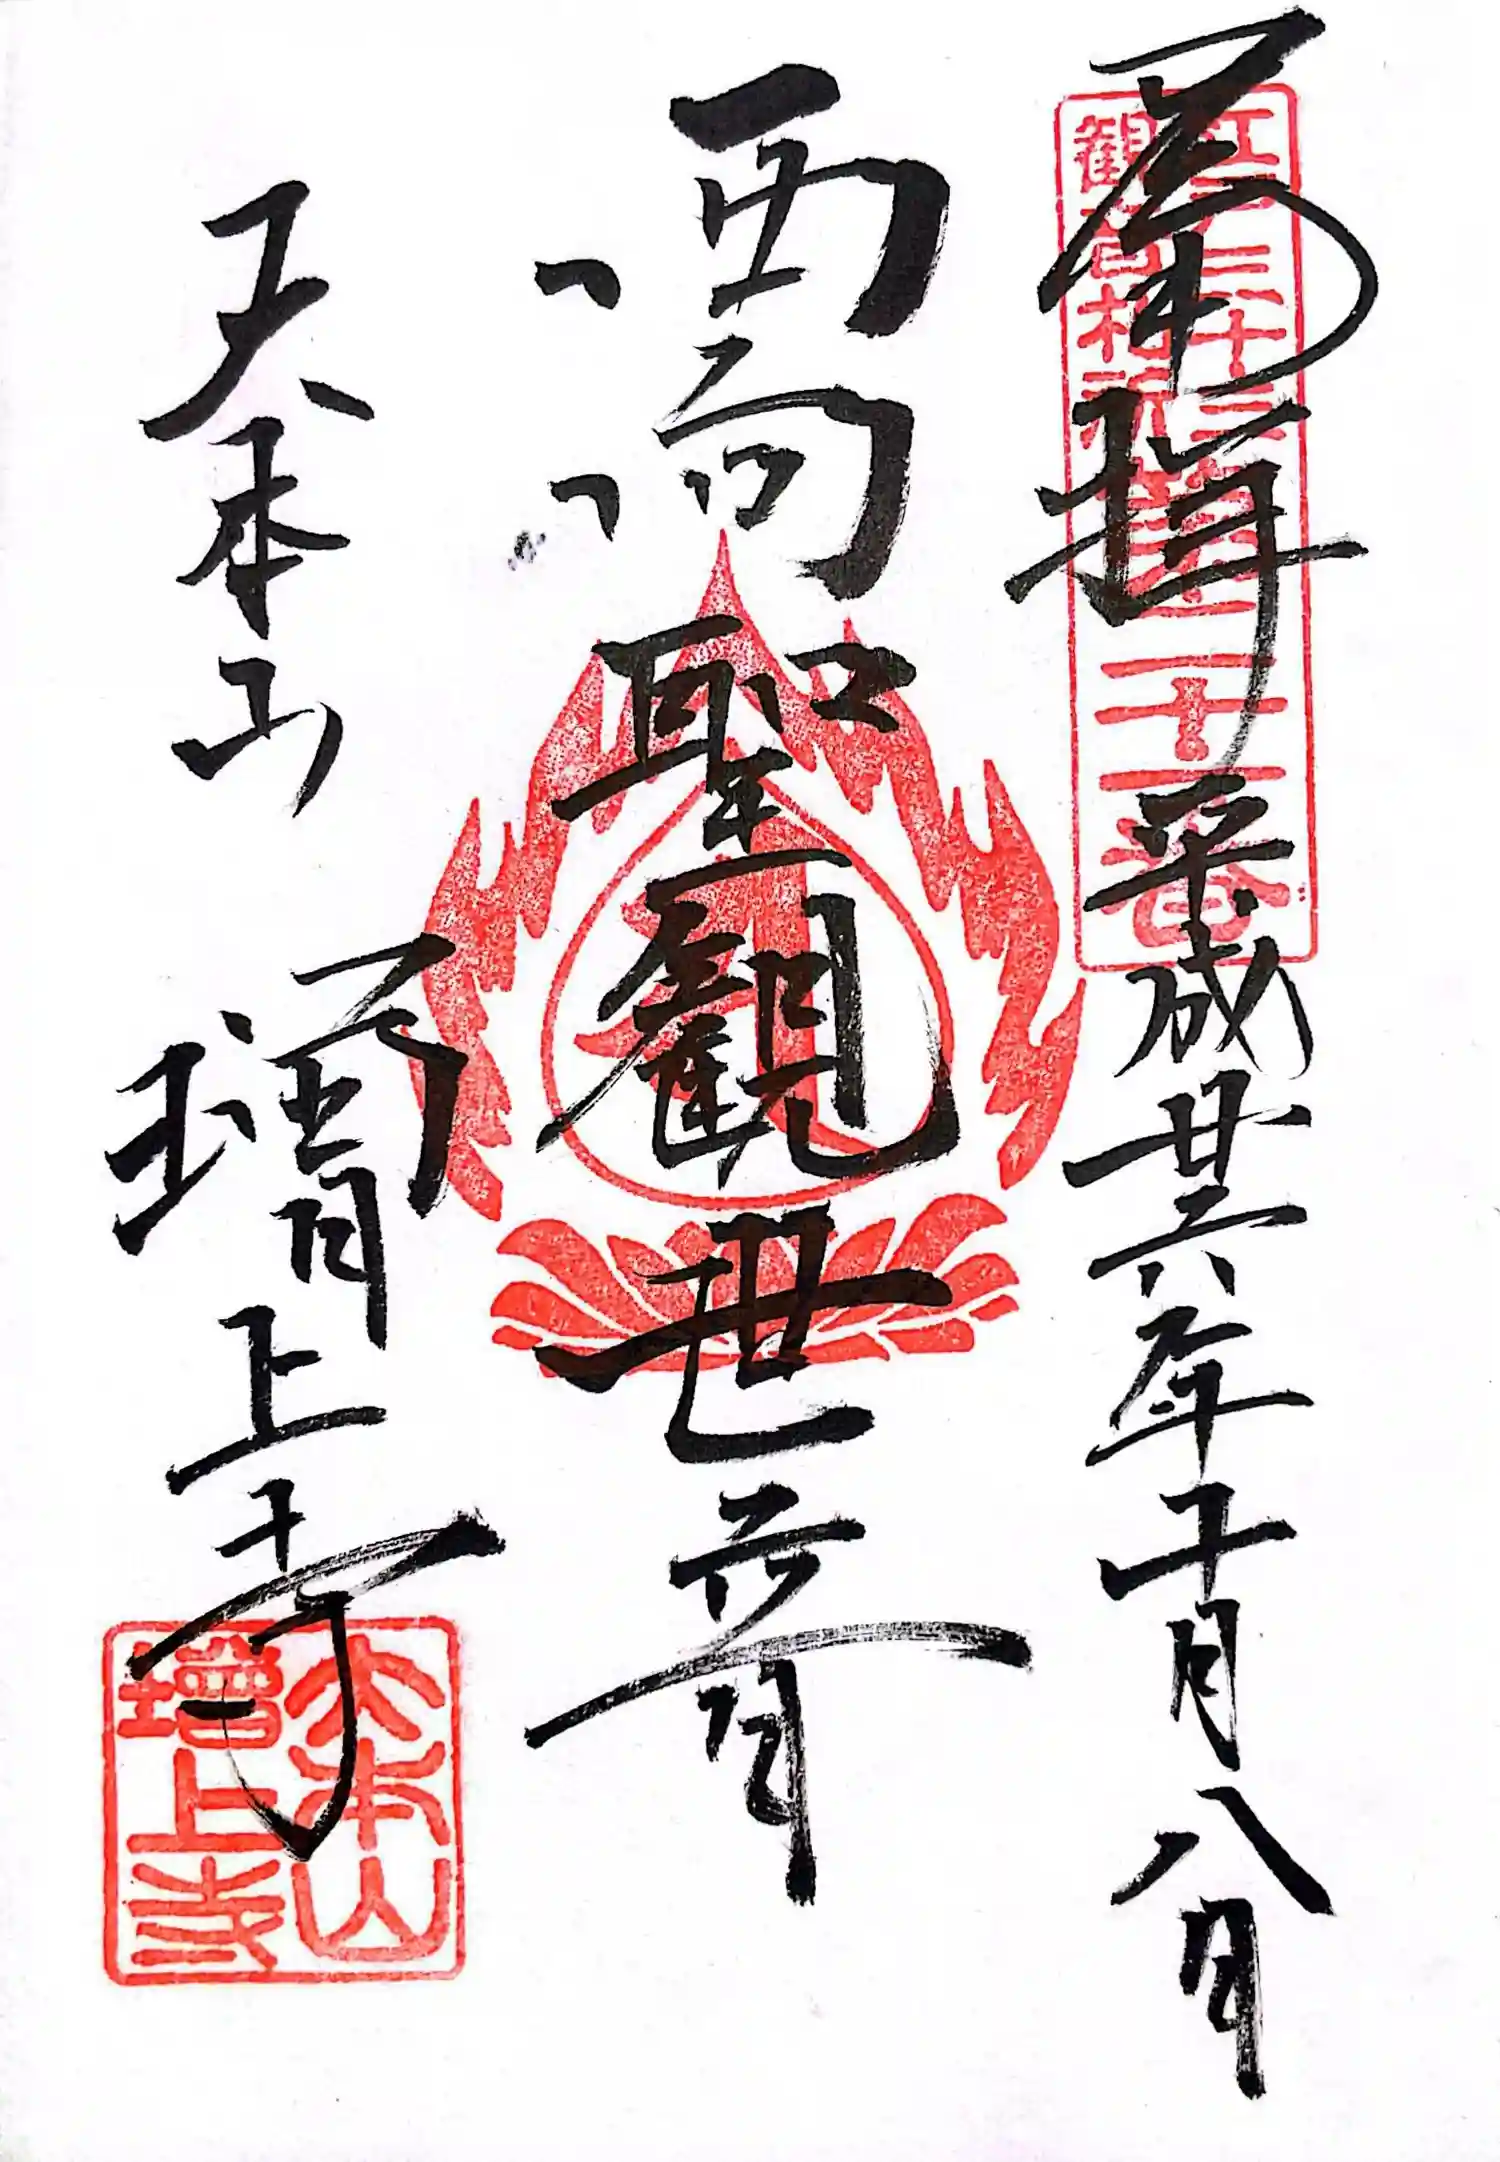 奉拝 平成廿六年十月八日
江戸三十三
観音札所
第二十一番
西向聖観世音
大本山 増上寺
大本山
増上寺